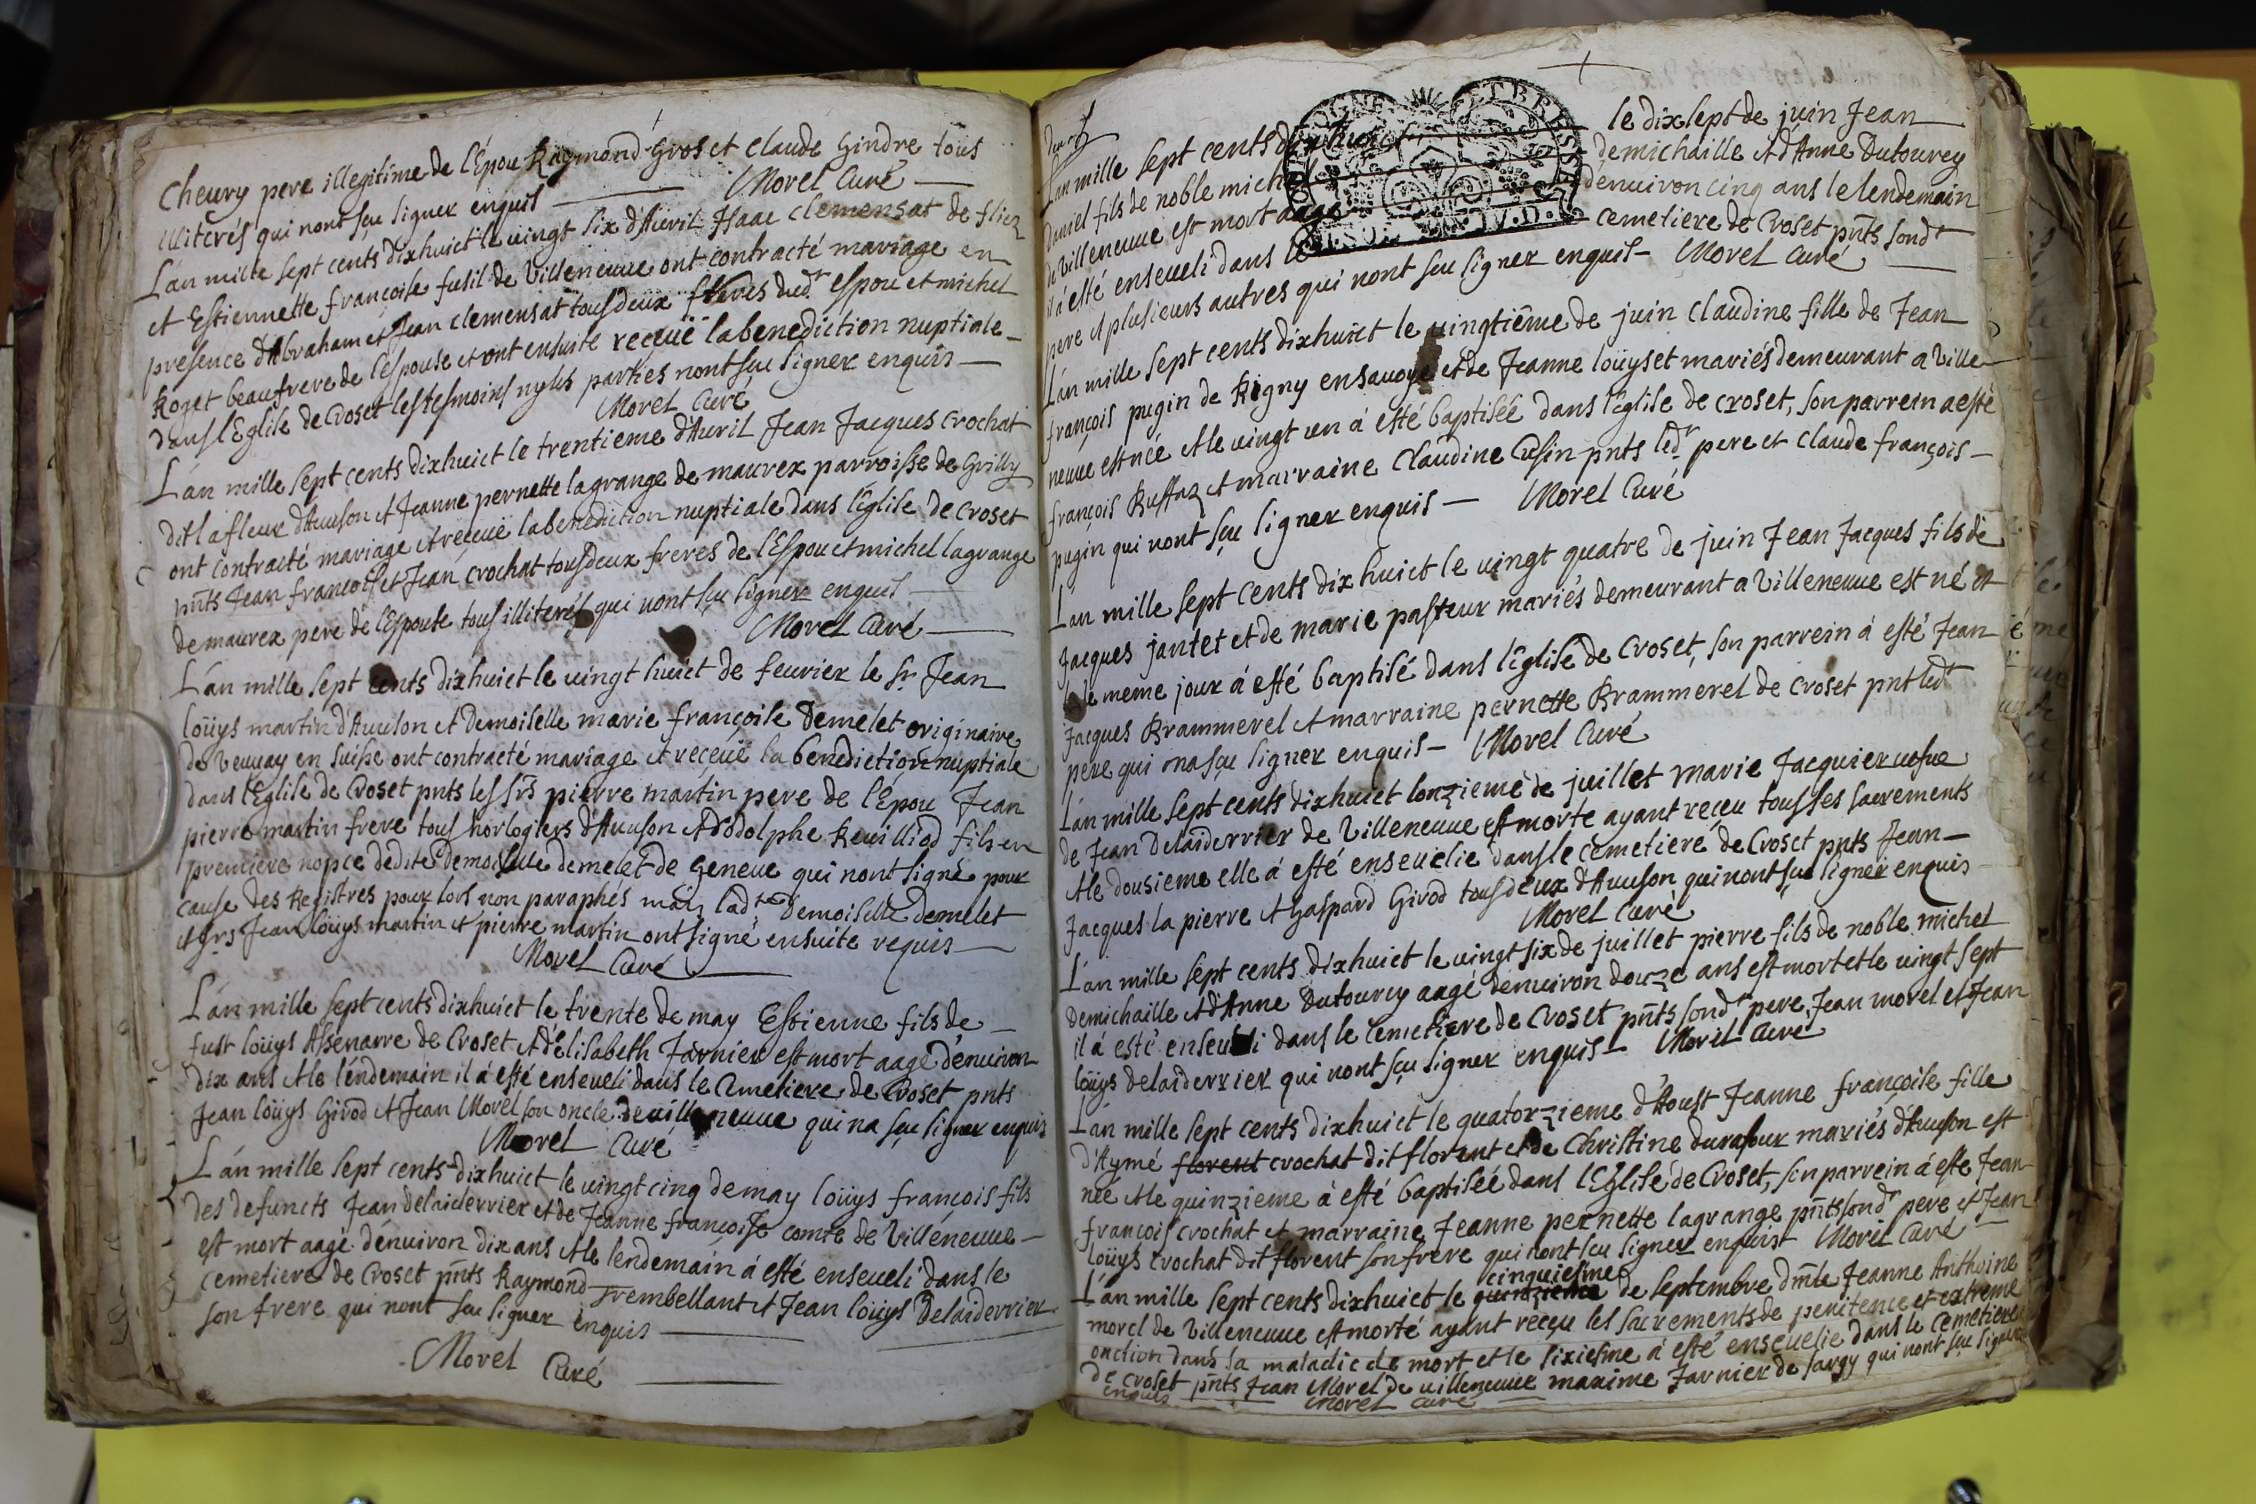 Cheury pere illegitime de l'Épou Raymond Gros et Claude Gindre tous
illiterés qui nont sçu signer enquis Morel Curé
L'an mille sept cents dixhuict le vingt six d'Auril Isaac Clemensat de fliez
et Estiennette françoise fusil de Villeneuue ont contracté mariage en
presence d'Abraham et Jean Clemensat tous deux freres dudt espou et michel
Roget beaufrere de l'espouse et ont ensuite reçeüe la benediction nuptiale
dans l'Eglise de Croset les tesmoins ny les parties n'ont sçu signer enquis
Morel Curé
L'an mille sept cents dixhuict le trentieme d'Auril Jean Jacques Crochat
dit la fleur d'Auuson et Jeanne pernette lagrange de maurex parroisse de Grilly
ont contracté mariage et reçeüe la benediction nuptiale dans l'Eglise de Croset
pnts Jean francois et Jean Crochat tous deux freres de l'Espou et michel lagrange
de maurex pere de l'Espouse tous illiterés qui nont sçu signer enquis
Morel Curé
L'an mille sept cents dixhuict le vingt huict de feurier le Sr Jean
loüys martin d'Auuson et Demoiselle marie françoise Demelet originaire
de Veuuay en Suisse ont contracté mariage et reçeüe la benediction nuptiale
dans l'Eglise de Croset pnts les Srs pierre martin pere de l'Épou Jean
pierre martin frere tous horlogiers d'Auuson et Adodolphe Reuilliod fils en
premiere nopce de dite demoiselle demelet de Geneue qui nont signé pour
cause des Registres pour lors non paraphés mais ladte Demoiselle demelet
et Srs Jean loüys martin et pierre martin ont signé ensuite requis
Morel Curé
L'an mille sept cents dixhuict le trente de may Estienne fils de
fust loüys Assenarre de Croset et d'Élisabeth Jarnier est mort aagé d'enuiron
dix ans et le lendemain il a esté enseueli dans le Cemetiere de Croset pnts
Jean loüys Girod et Jean Morel son oncle de villeneuue qui na sçu signer enquis
Morel Curé
L'an mille sept cents dixhuict le vingt cinq de may loüys françois fils
des defuncts Jean delaiderrier et de Jeanne françoise Comte de Villeneuue
est mort aagé d'enuiron dix ans et le lendemain a esté enseueli dans le
cemetiere de Croset pnts Raymond Trembellant et Jean loüys Delaiderrier
son frere qui nont sçu signer enquis
Morel Curé
L'an mille sept cents dixhuict le dixsept de juin Jean
Daniel fils de noble michel demichaille et d'Anne Dutourey
de Villeneuue est mort aagé denuiron cinq ans le lendemain
il a esté enseueli dans le cemetiere de Croset pnts sondt
pere et plusieurs autres qui nont sçu signer enquis Morel Curé
L'an mille sept cents dixhuict le vingtiême de juin Claudine fille de Jean
françois pugin de Rigny en Sauoye et de Jeanne loüyset mariés demeurant a Ville
neuue est née et le vingt un a esté baptisée dans l'Eglise de croset, son parrein a esté
françois Ruffaz et marraine Claudine Cusin pnts ledt pere et Claude françois
pugin qui nont sçu signer enquis Morel Curé
L'an mille sept cents dix huict le vingt quatre de juin Jean Jacques fils de
Jacques jantet et de marie pasteur mariés demeurant a Villeneuue est né et
le meme jour a esté baptisé dans l'Eglise de Croset, son parrein a esté Jean
Jacques Brammerel et marraine pernette Brammerel de Croset pnt ledt
pere qui na sçu signer enquis Morel Curé
L'an mille sept cents dixhuict lonzieme de juillet marie Jacquier vefue
de Jean Delaiderrier de Villeneuue est morte ayant reçeu tous ses sacrements
et le dousieme elle a esté enseuelie dans le cemetiere de Croset pnts Jean
Jacques la pierre et Gaspard Girod tous deux d'Auuson qui nont sçu signer enquis
Morel Curé
L'an mille sept cents dixhuict le vingt six de juillet pierre fils de noble michel
Demichaille et d'Anne Dutourey aagé denuiron douze ans est mort et le vingt sept
il a esté enseueli dans le Cemetiere de Croset pnts sondt pere, Jean morel et Jean
loüys delaiderrier qui nont sçu signer enquis Morel Curé
L'an mille sept cents dixhuict le quatorzieme d'Aoust Jeanne françoise fille
d'Aymé florent crochat dit florent et de Christine durafour mariés d'Auuson est
née et le quinzieme a esté baptisée dans l'Eglise de Croset, son parrein a este Jean
françois Crochat et marraine Jeanne pernette lagrange pnts sondt pere et Jean
loüys Crochat dit florent son frere qui nont sçu signer enquis Morel Curé
cinquiesme
L'an mille sept cents dixhuict le quinzieme de Septembre Dmlle Jeanne Anthoine
morel de Villeneuue est morte ayant reçeu les sacrements de penitence et extreme
onction dans sa maladie de mort et le sixiesme a esté enseuelie dans le cemetiere
de Croset pnts Jean Morel de villeneuue maxime Jarnier de Sargy qui nont sçu signer
enquis Morel Curé